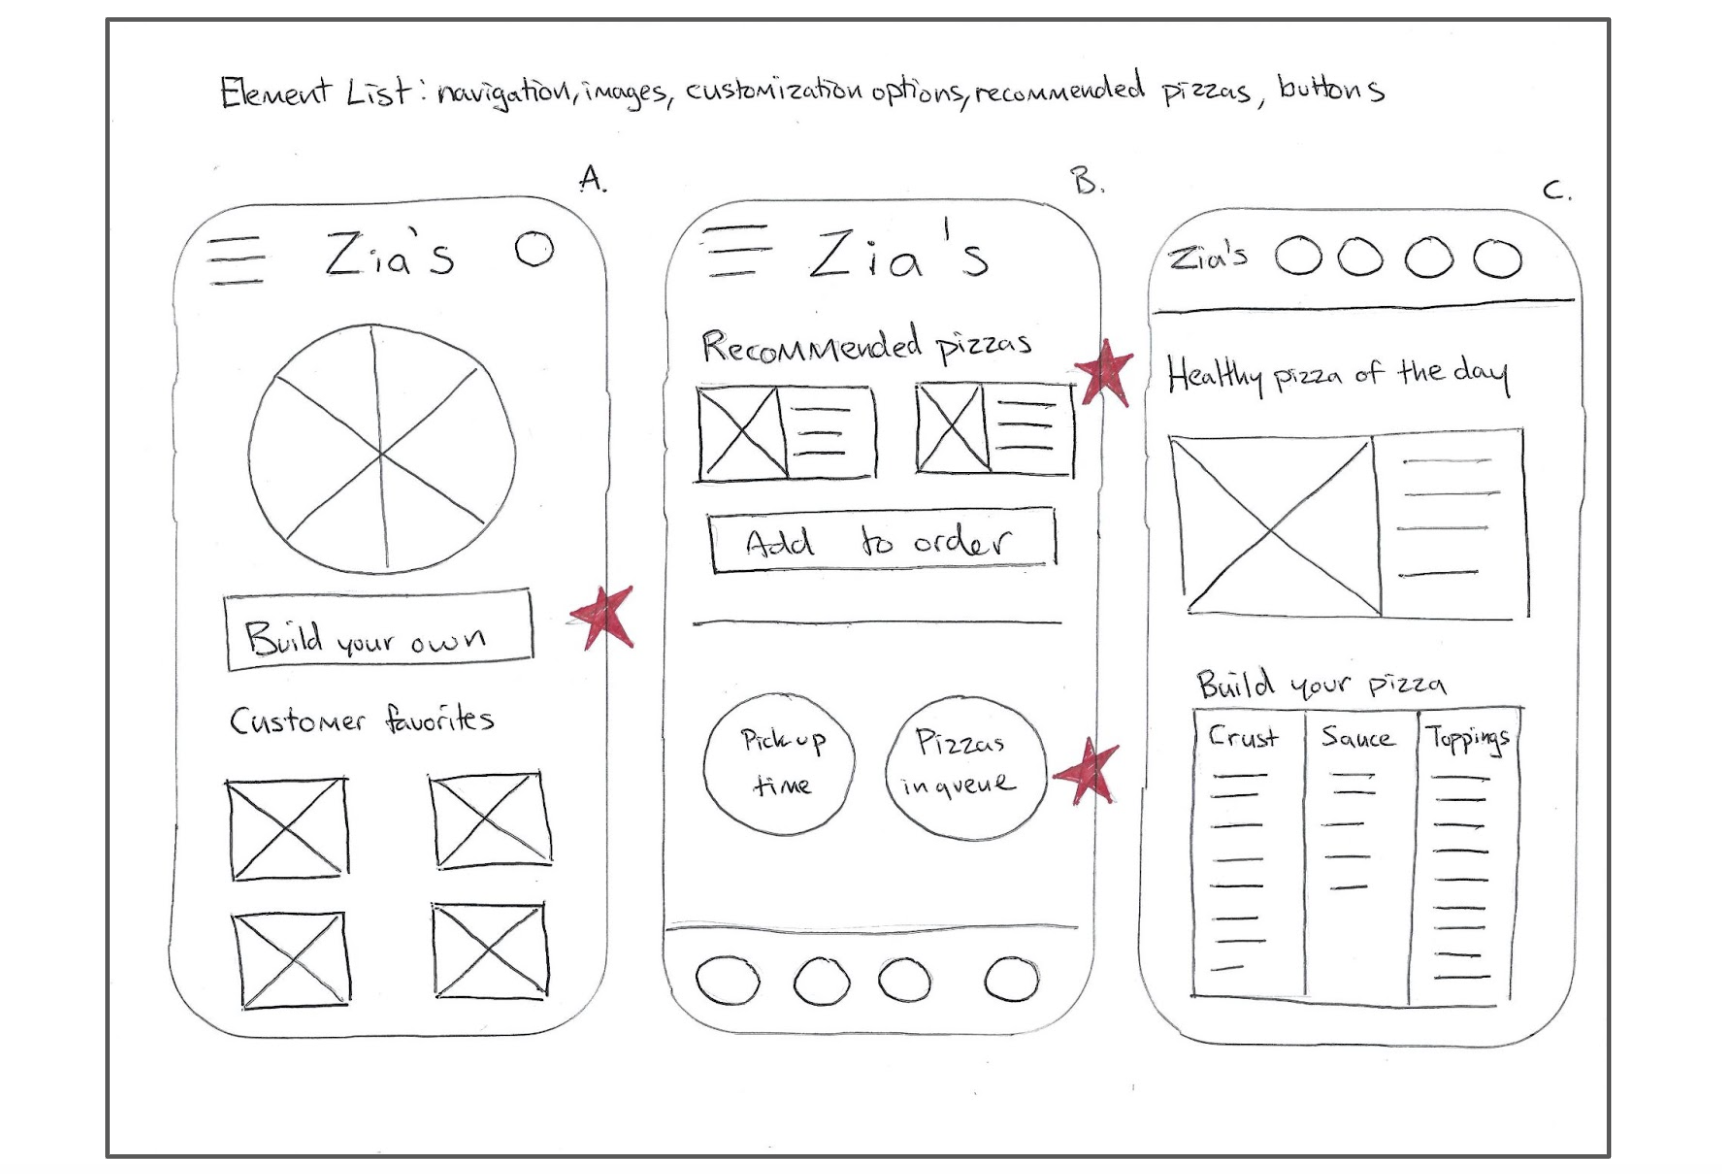 Element List: navigation, images, customization options, recommended pizzas, buttons
A.
Zia's
Build your own
Customer favorites
B.
Zia's
Recommended pizzas
Add to order
Pick-up
time
Pizzas
in queue
C.
Zia's
Healthy pizza of the day
Build your pizza
Crust
Sauce
Toppings